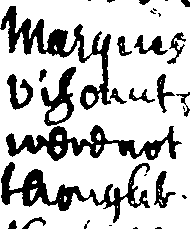 Marquis
Visount
were not
thought